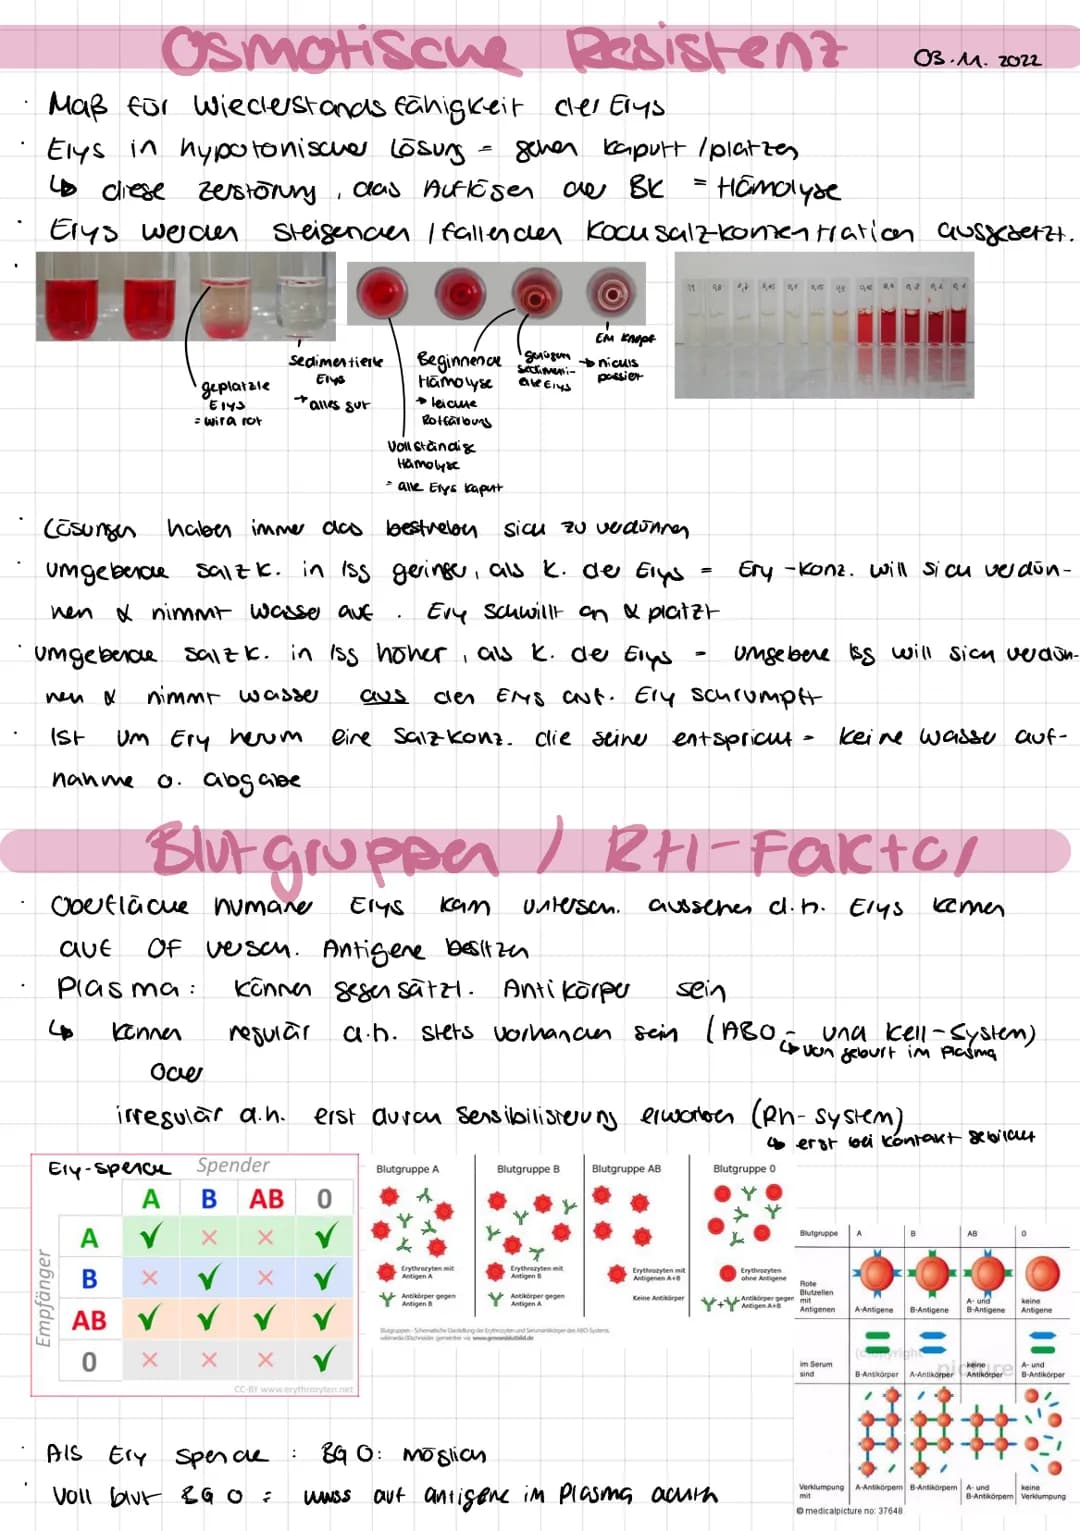 Osmotische Resistenz
03.11.2022
· Maß für Wiederstandsfähigkeit der Erys
· Erys in hypotonischer Lösung = gehen kaputt / platzen
↳ diese Zerstörung, das Auflösen der BK = Hämolyse
· Erys werden steigenden / fallenden Kochsalzkonzentration ausgesetzt.
geplatzte
Erys
= wird rot
Sedimentierte
Erys
→ alles gut
Vollständige
Hämolyse
= alle Erys kaputt
Beginnende
Hämolyse
→ leichte
Rotfärbung
Erys
→ nichts
passiert
· Lösungen haben immer das bestreben sich zu verdünnen
· umgebende Salzk. in lsg geringer, als K. der Erys = Ery-Konz. will sich verdün-
nen & nimmt Wasser auf. Ery schwillt an & platzt
· umgebende Salzk. in lsg höher, als K. der Erys = umgebene lsg will sich verdün-
nen & nimmt wasser aus den Erys auf. Ery schrumpft
· Ist um Ery herum eine Salzkonz. die seiner entspricht = keine wasser auf-
nahme o. abgabe
Blutgruppen / RH-Faktor
· Oberfläche humaner Erys kann untersch. aussehen d.h. Erys können
auf OF versch. Antigene besitzen
· Plasma: können gegensätzl. Antikörper sein
↳ können regulär d.h. stets vorhanden sein (ABO- und Kell-System)
↳ von geburt im Plasma
Oder
irregulär d.h. erst durch Sensibilisierung erworben (Rh-System)
↳ erst bei Kontakt gebildet
Ery-Spende
Spender
A B AB 0
Empfänger
A ✓ × × ✓
B × ✓ × ✓
AB ✓ ✓ ✓ ✓
0 × × × ✓
CC-BY www.erythrozyten.net
Blutgruppe A
Erythrozyten mit
Antigen A
Antikörper gegen
Antigen B
Blutgruppe B
Erythrozyten mit
Antigen B
Antikörper gegen
Antigen A
Blutgruppe AB
Erythrozyten mit
Antigenen A+B
Keine Antikörper
Blutgruppe 0
Erythrozyten
ohne Antigene
Antikörper gegen
Antigen A+B
Blutgruppen - Schematische Darstellung der Erythrozyten und Serumantikörper des AB0-Systems
Blutgruppe A B AB 0
Rote
Blutzellen
mit
Antigenen
A-Antigene
B-Antigene
A- und
B-Antigene
keine
Antigene
im Serum
sind
B-Antikörper
A-Antikörper
keine
Antikörper
A- und
B-Antikörper
Verklumpung
mit
A-Antikörpern
B-Antikörpern
A- und
B-Antikörpern
keine
Verklumpung
© medicalpicture no: 37648
· Als Ery Spende : BG O: möglich
· Voll blut BG O = muss auf antigene im Plasma